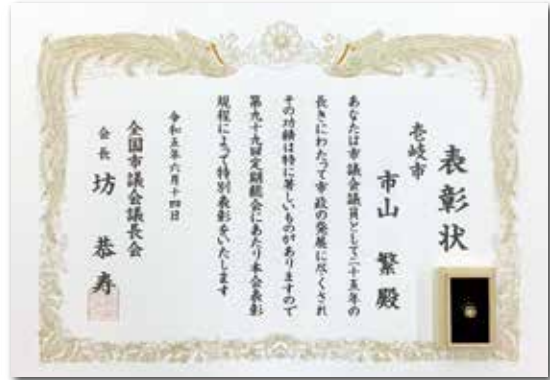 表彰状
壱岐市
市山 繁 殿
あなたは市議会議員として二十五年の
長きにわたって市政の発展に尽くされ
その功績は特に著しいものがありますので
第九十九回定期総会にあたり本会表彰
規程によって特別表彰をいたします
令和五年六月十四日
全国市議会議長会
会長 坊 恭寿